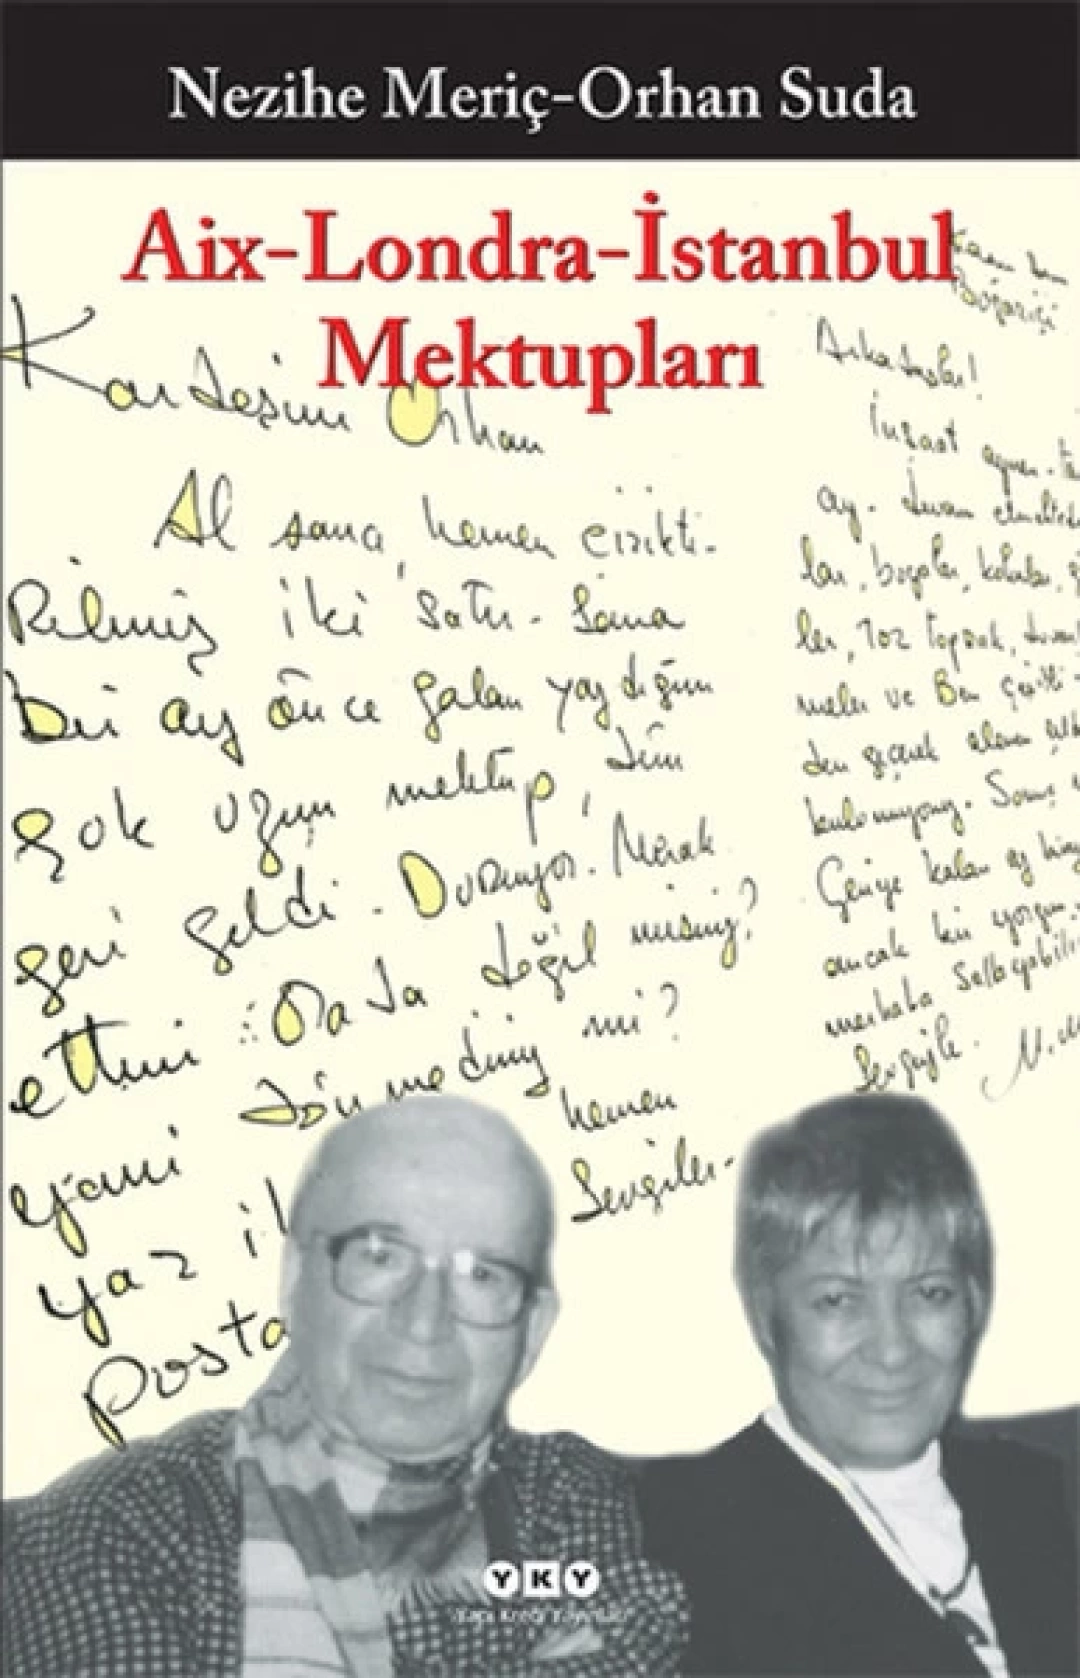 Nezihe Meriç-Orhan Suda
Aix-Londra-İstanbul
Mektupları
Kardeşim Orhan
Al sana, hemen çizikti-
Rilmiş iki satır. Sana
bir ay önce falan yazdığım
çok uzun mektup, dün
geri geldi. Duruyor. Merak
ettim: Orada değil misiniz?
yani dönmediniz mi?
yaz hemen
posta Sevgiler.
Boğaziçi
Arkadaşlar!
İnşaat
ay. devam
ler, toz toprak,
meler ve Ben çeşitli
den geçerek
Geriye kalan az
ancak bir yorgun
merhaba
Sevgiyle.
YKY
Yapı Kredi Yayınları